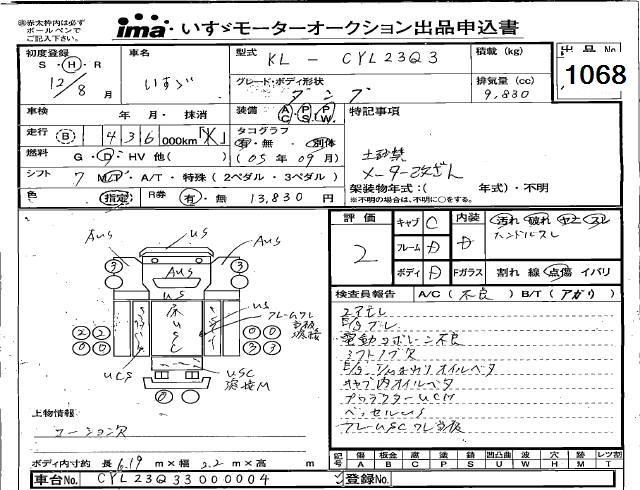 ㊟赤太枠内は必ず
ボールペンで
ご記入下さい。
ima いすゞモーターオークション出品申込書
初度登録
S・H・R
12/8 月
車名
いすゞ
型式 KL - CYL23Q3
グレード・ボディ形状
ダンプ
積載(kg)
排気量(cc)
9,830
出品No
1068
車検 年 月・抹消
装備 AC PS PW
特記事項
走行 B 436 000km
タコグラフ
有・無・別体
燃料 G・D・HV 他( )
(05年09月)
土砂禁
メーター改ざん
シフト 7 MT・A/T・特殊(2ペダル・3ペダル)
架装物年式:( 年式)・不明
※不明の場合は、不明に○をする。
色 指定 R券 有・無 13,830 円
評価 2
キャブ C
フレーム D
ボディ D
内装 D
汚れ 破れ ヤニ スレ
ハンドルスレ
Fガラス 割れ 線 点傷 イバリ
検査員報告 A/C(不良) B/T(アガリ)
エアモレ
E/gブレ
電動コボレーン不良
シフトノブ欠
E/g, T/mまわりオイルベタ
キャブ内オイルベタ
プロテクターUCM
ベッセルUS
フレームSCワレ当板
AUS
US
AUS
AUS
3
3
0
US
床US
US
フレームワレ
当板
溶接
2 2
0 0
0 0
3 3
UCS
USC
溶接M
0
上物情報
コーション欠
ボディ内寸約 長 6.19 m×幅 2.2 m×高 m
記号 傷 A 板金 B 腐 C 塗 P 錆 S 凹凸曲 U 波 W 穴 H 跡 M レツ割 T
車台No. CYL23Q33000004
登録No.